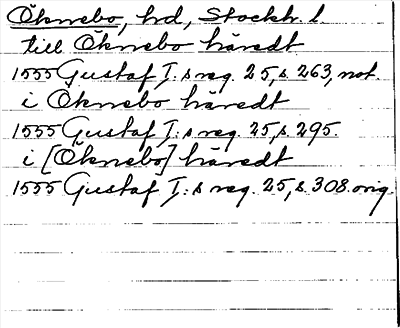 Öknebo, hd, Stockh. l.
till Öknebo häredt
1555 Gustaf I:s reg. 25, s. 263, not.
i Öknebo häredt
1555 Gustaf I:s reg. 25, s. 295.
i [Öknebo] häredt
1555 Gustaf I:s reg. 25, s. 308. orig.